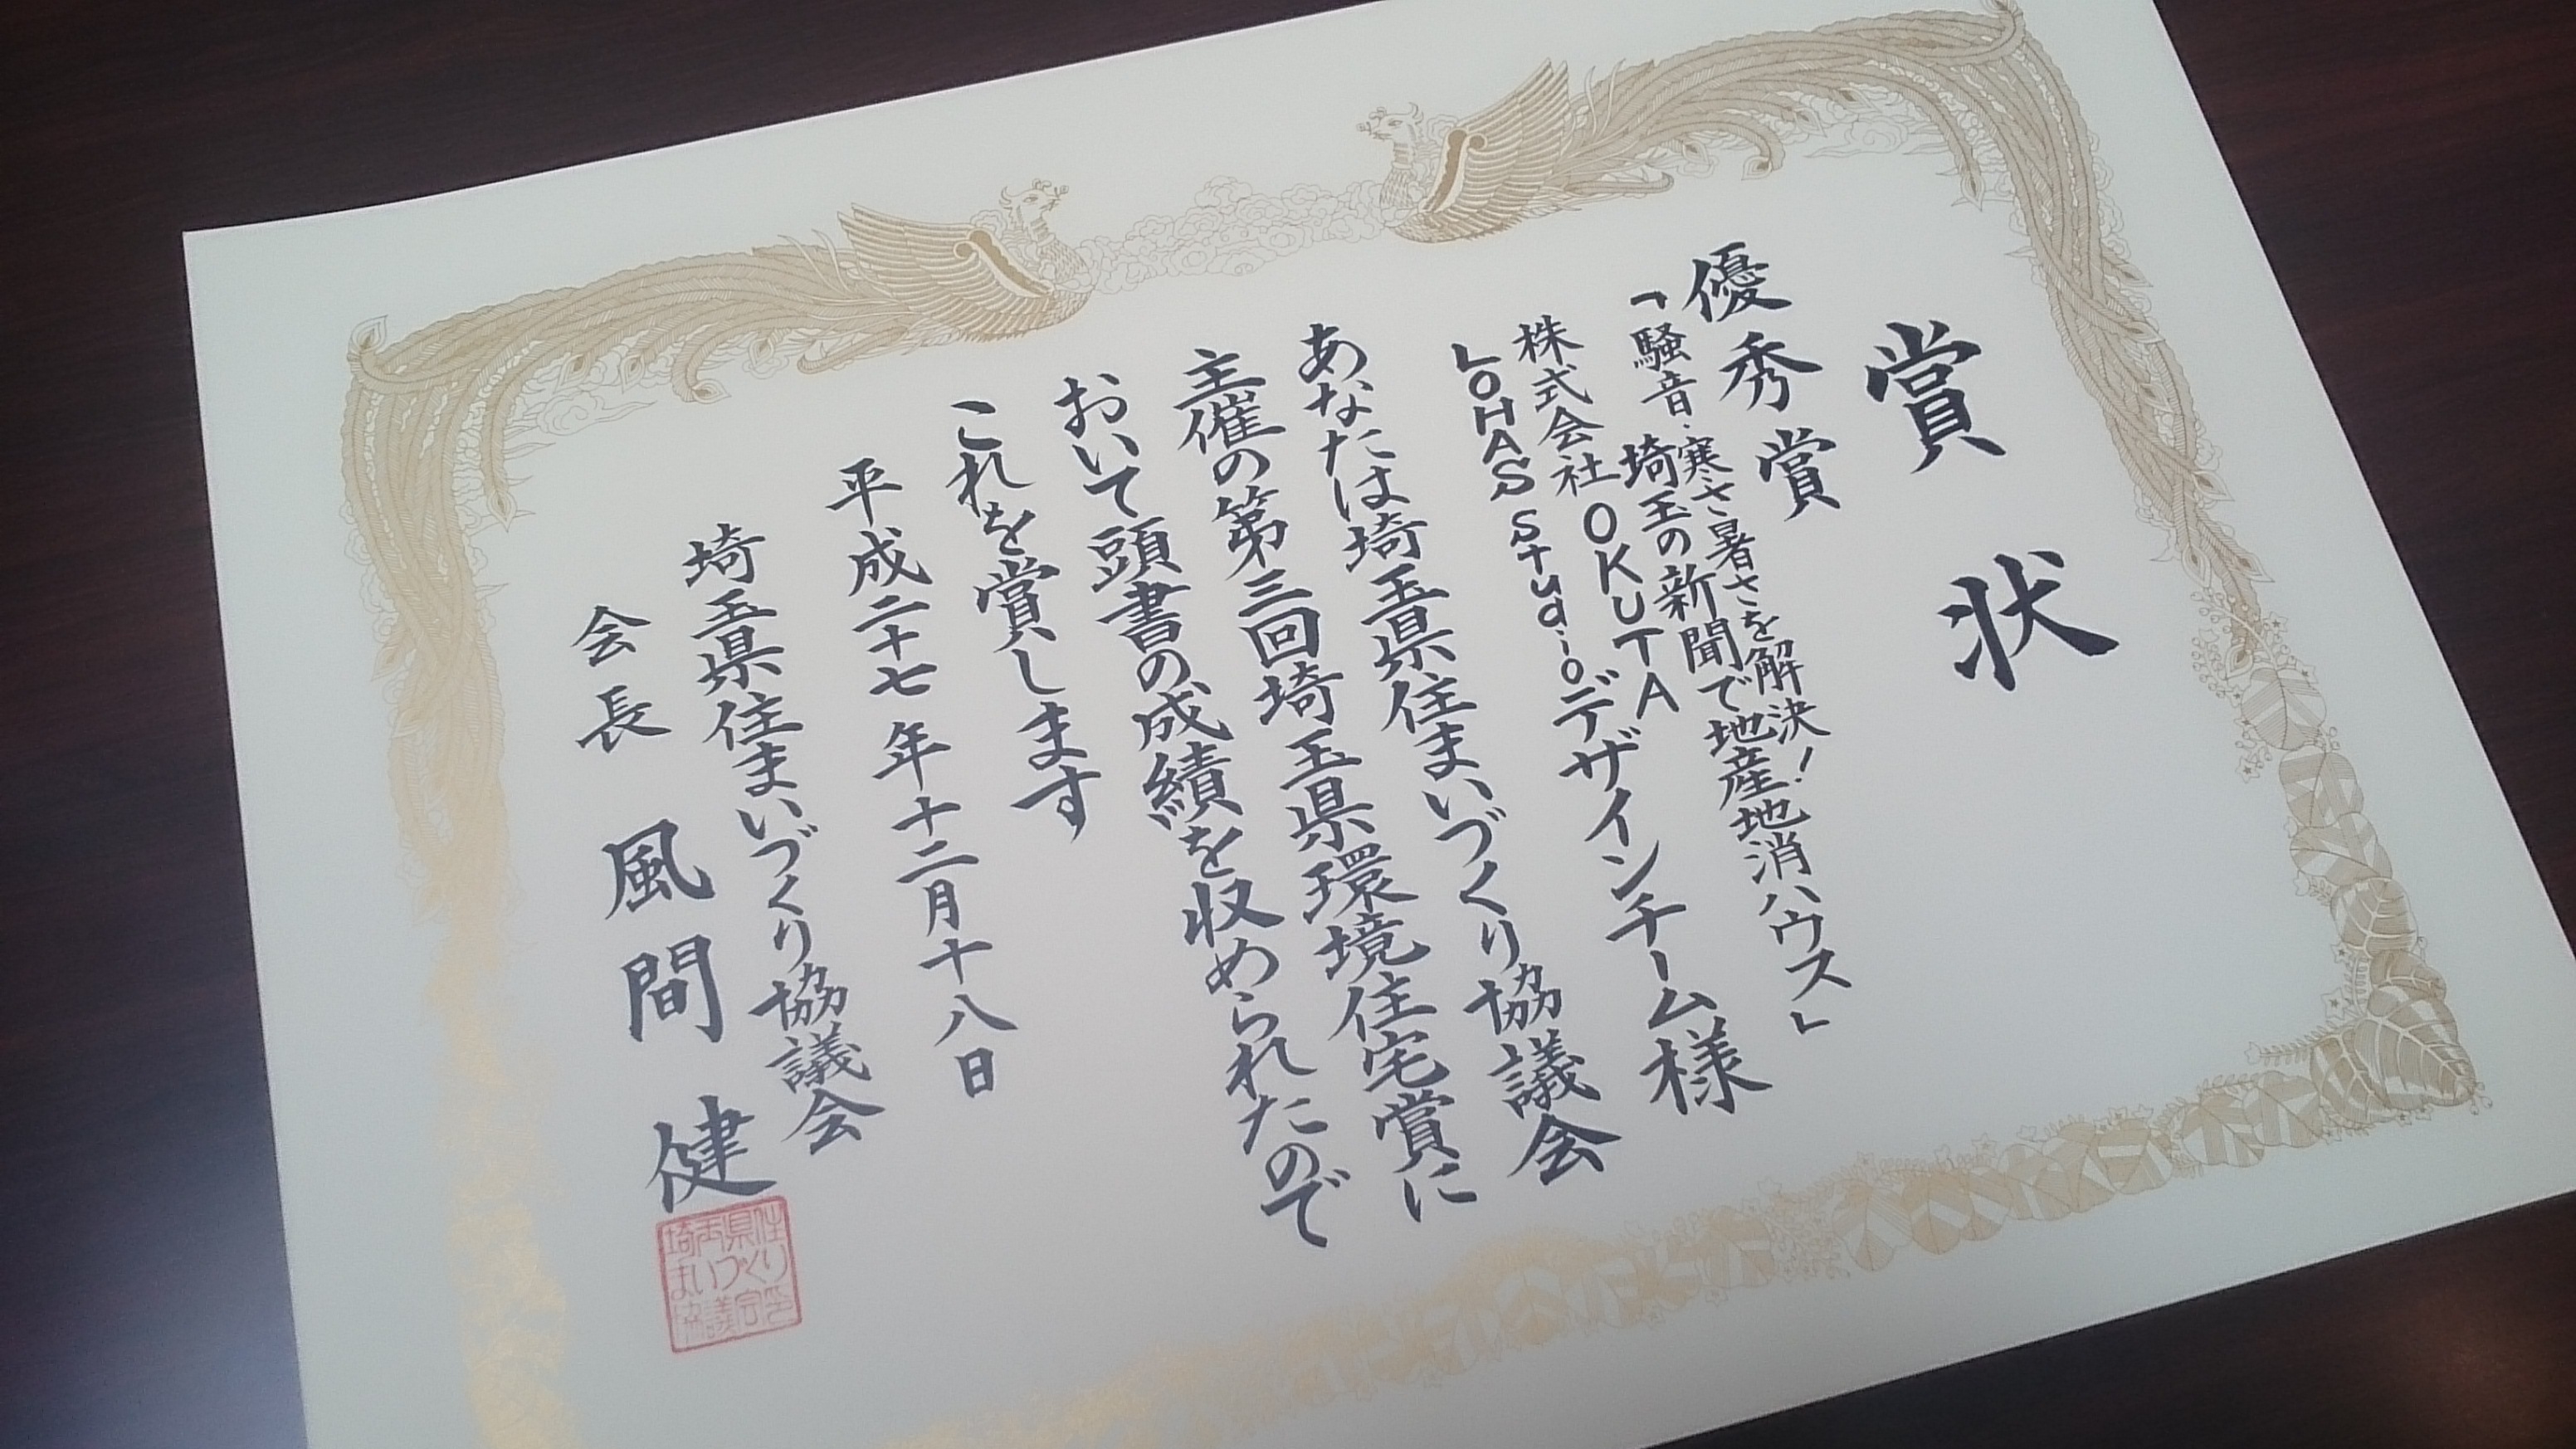 賞状
優秀賞
「騒音・寒さ暑さを解決！
埼玉の新聞で地産地消ハウス」
株式会社OKUTA
LOHAS studioデザインチーム様
あなたは埼玉県住まいづくり協議会
主催の第三回埼玉県環境住宅賞に
おいて頭書の成績を収められたので
これを賞します
平成二十七年十二月十八日
埼玉県住まいづくり協議会
会長 風間健
埼玉県住
まいづくり
協議会印